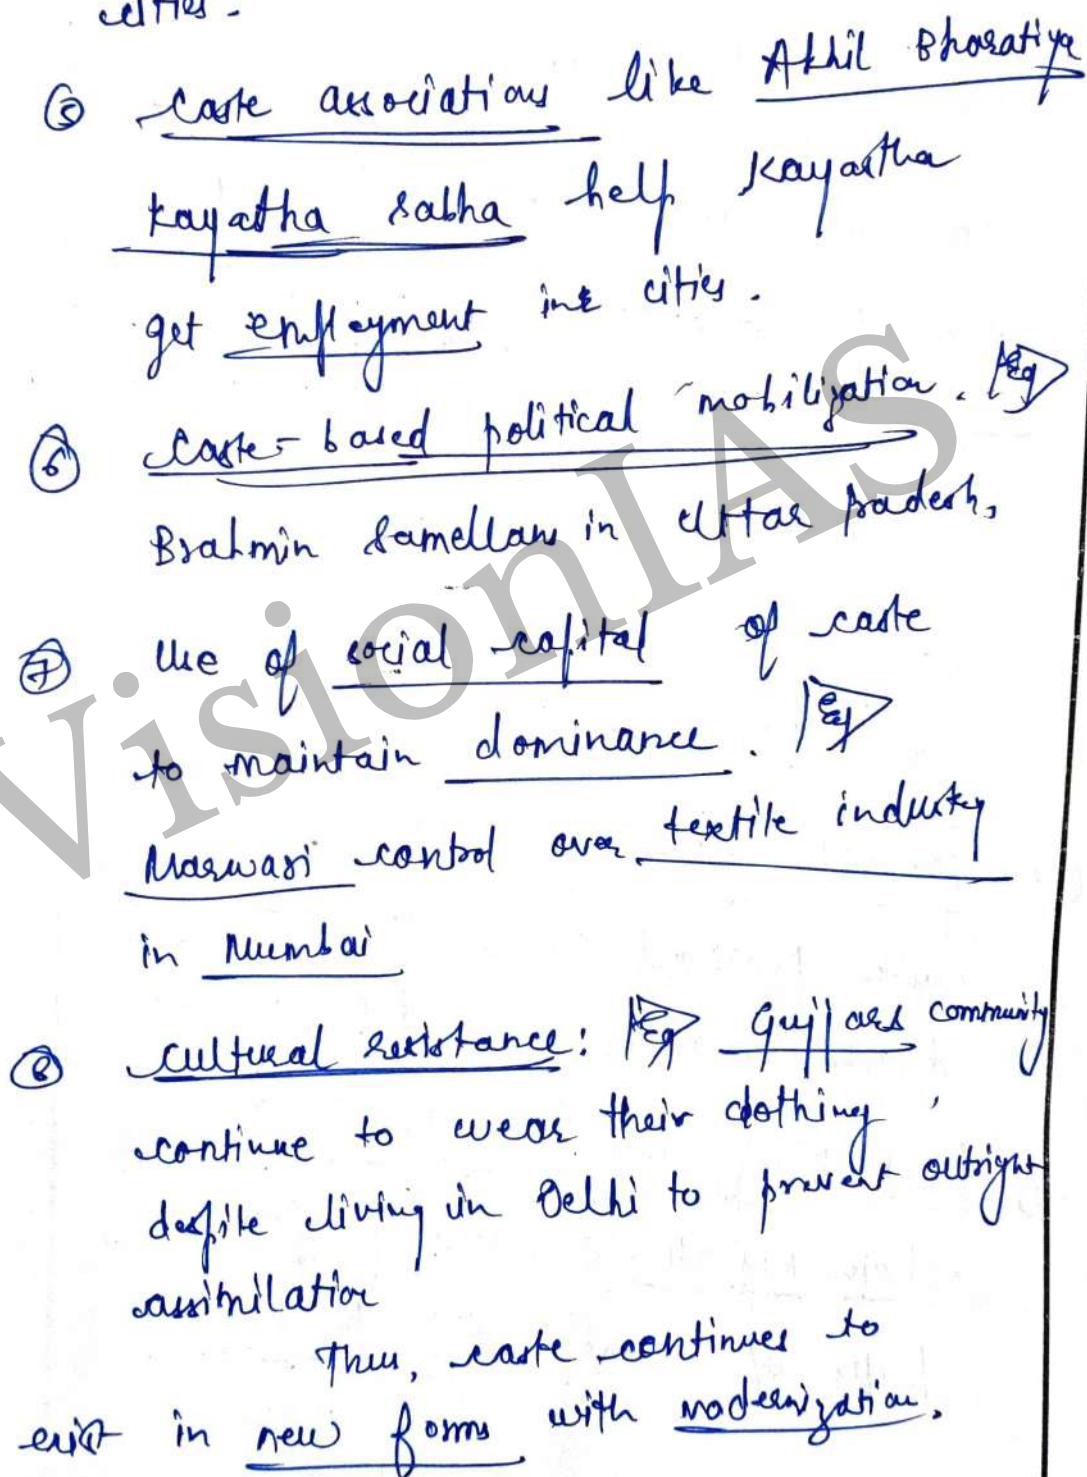 cities.
⑤ caste associations like Akhil Bharatiya
Kayatha sabha help Kayastha
get employment in cities.
⑥ Caste-based political mobilization. Eg
Brahmin Samellans in Uttar pradesh,
⑦ Use of social capital of caste
to maintain dominance. Eg
Marwari control over textile industry
in Mumbai
⑧ cultural resistance: Eg Gujjars community
continue to wear their clothing,
despite living in Delhi to prevent outright
assimilation
Thus, caste continues to
exist in new forms with modernization.
VisionIAS